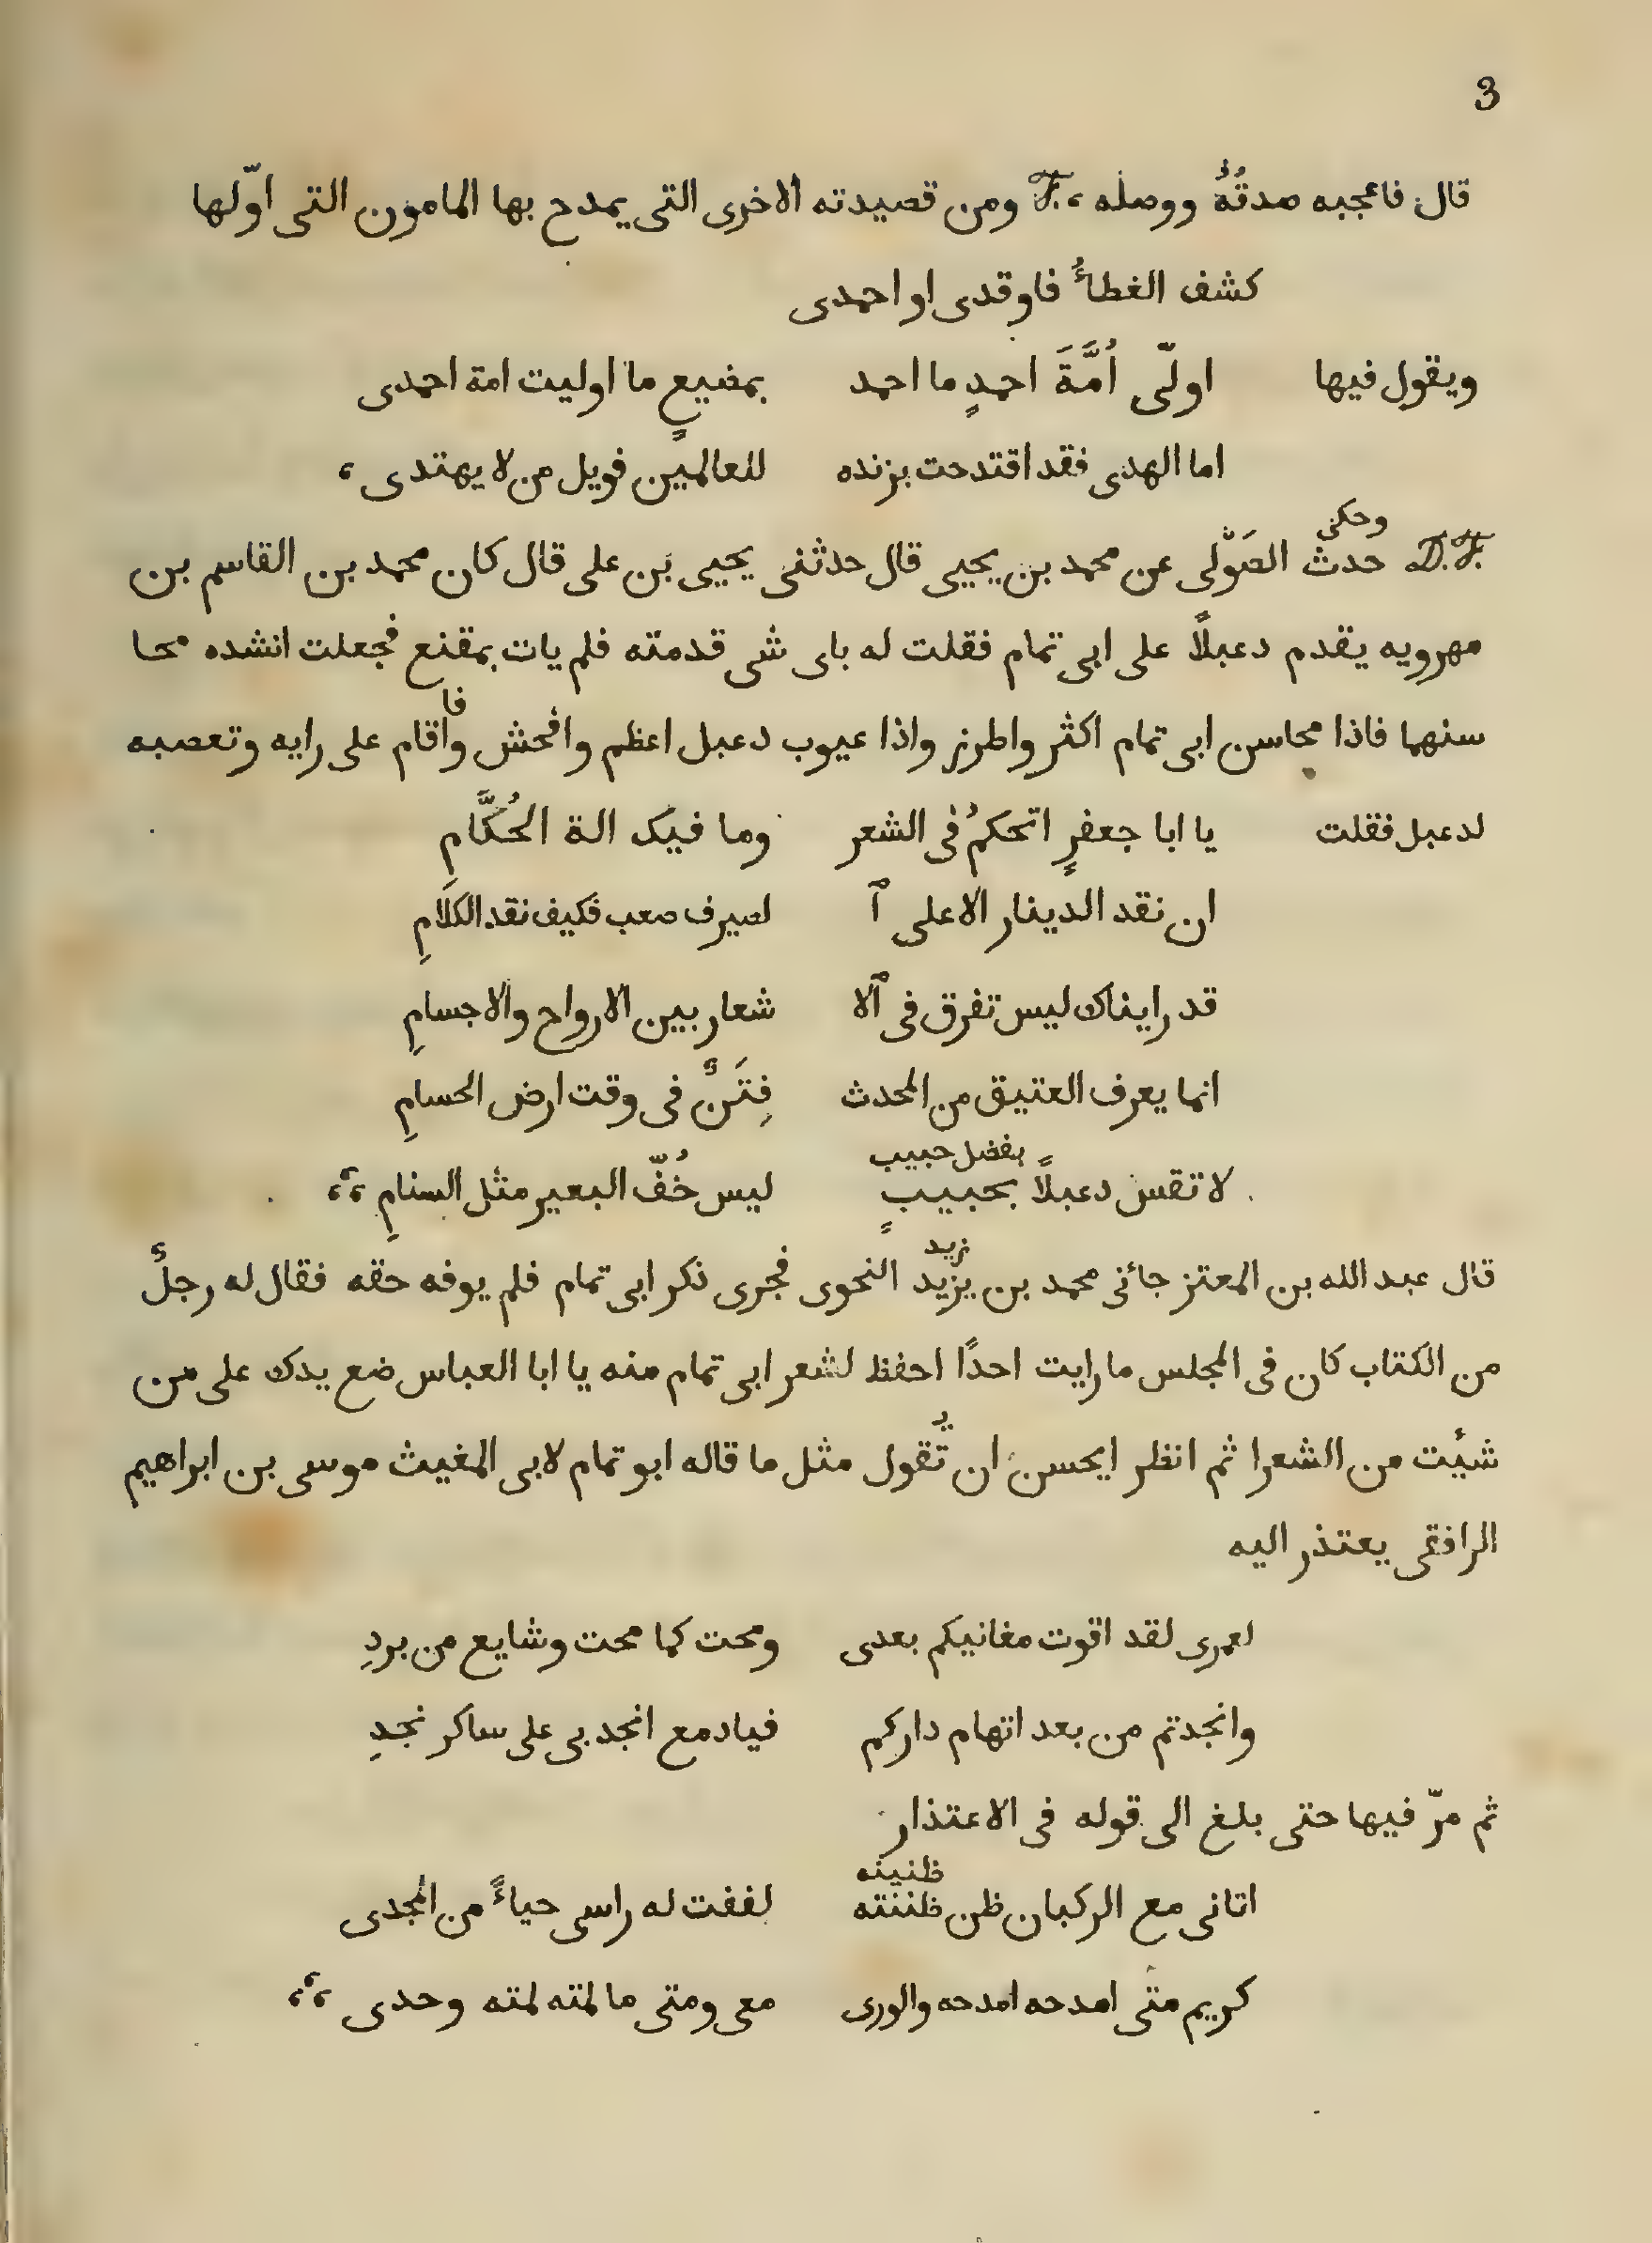 3
قال فاعجبه صدقُهُ ووصله ، F. ومن قصيدته الاخرى التى يمدح بها المامون التى اوّلها
كشف الغطاءُ فاوقدى او احمدى
ويقول فيها اولّى اُمَّةَ احمدٍ ما احمد بمضيعٍ ما اوليت امة احمدى
اما الهدى فقد اقتدحت بزنده للعالمين فويل من لا يهتدى ،
وحكى
D.F. حدث الصَوْلى عن محمد بن يحيى قال حدثنى يحيى بن على قال كان محمد بن القاسم بن
مهرويه يقدم دعبلاً على ابى تمام فقلت له باى شى قدمته فلم يات بمقنع فجعلت انشده محا
فا
سنهما فاذا محاسن ابى تمام اكثر واطرز واذا عيوب دعبل اعظم وافحش واقام على رايه وتعصبه
لدعبل فقلت يا ابا جعفرٍ اتحكمُ فى الشعر وما فيك الة الحُكَّامِ
ان نقد الدينار الا على آ لصيرف صعب فكيف نقد الكلامِ
قد رايناك ليس تفرق فى آلا شعار بين الارواح والاجسامِ
انما يعرف العتيق من المحدث فِتَنٌ فى وقت ارض الحسامِ
بفضل حبيب
لا تقس دعبلاً بحبيبٍ ليس خُفّ البعير مثل السنامِ ،،
زيد
قال عبد الله بن المعتز جائنى محمد بن يزيد النحوى فجرى ذكر ابى تمام فلم يوفه حقه فقال له رجلٌ
من الكتاب كان فى المجلس ما رايت احدًا احفظ لشعر ابى تمام منه يا ابا العباس ضع يدك على من
شئت من الشعرا ثم انظر ايحسن ان تُقول مثل ما قاله ابو تمام لابى المغيث موسى بن ابراهيم
الرافقى يعتذر اليه
لعمرى لقد اقوت مغانيكم بعدى ومحت كما محت وشايع من بردِ
وانجدتم من بعد اتهام داركم فيادمع انجدبى على ساكر نجدِ
ثم مرّ فيها حتى بلغ الى قوله فى الاعتذار
ظنينه
اتانى مع الركبان ظن ظننته لففت له راسى حياءً من المجدى
كريم متى امدحه امدحه والورى معى ومتى ما لمته لمته وحدى ،،